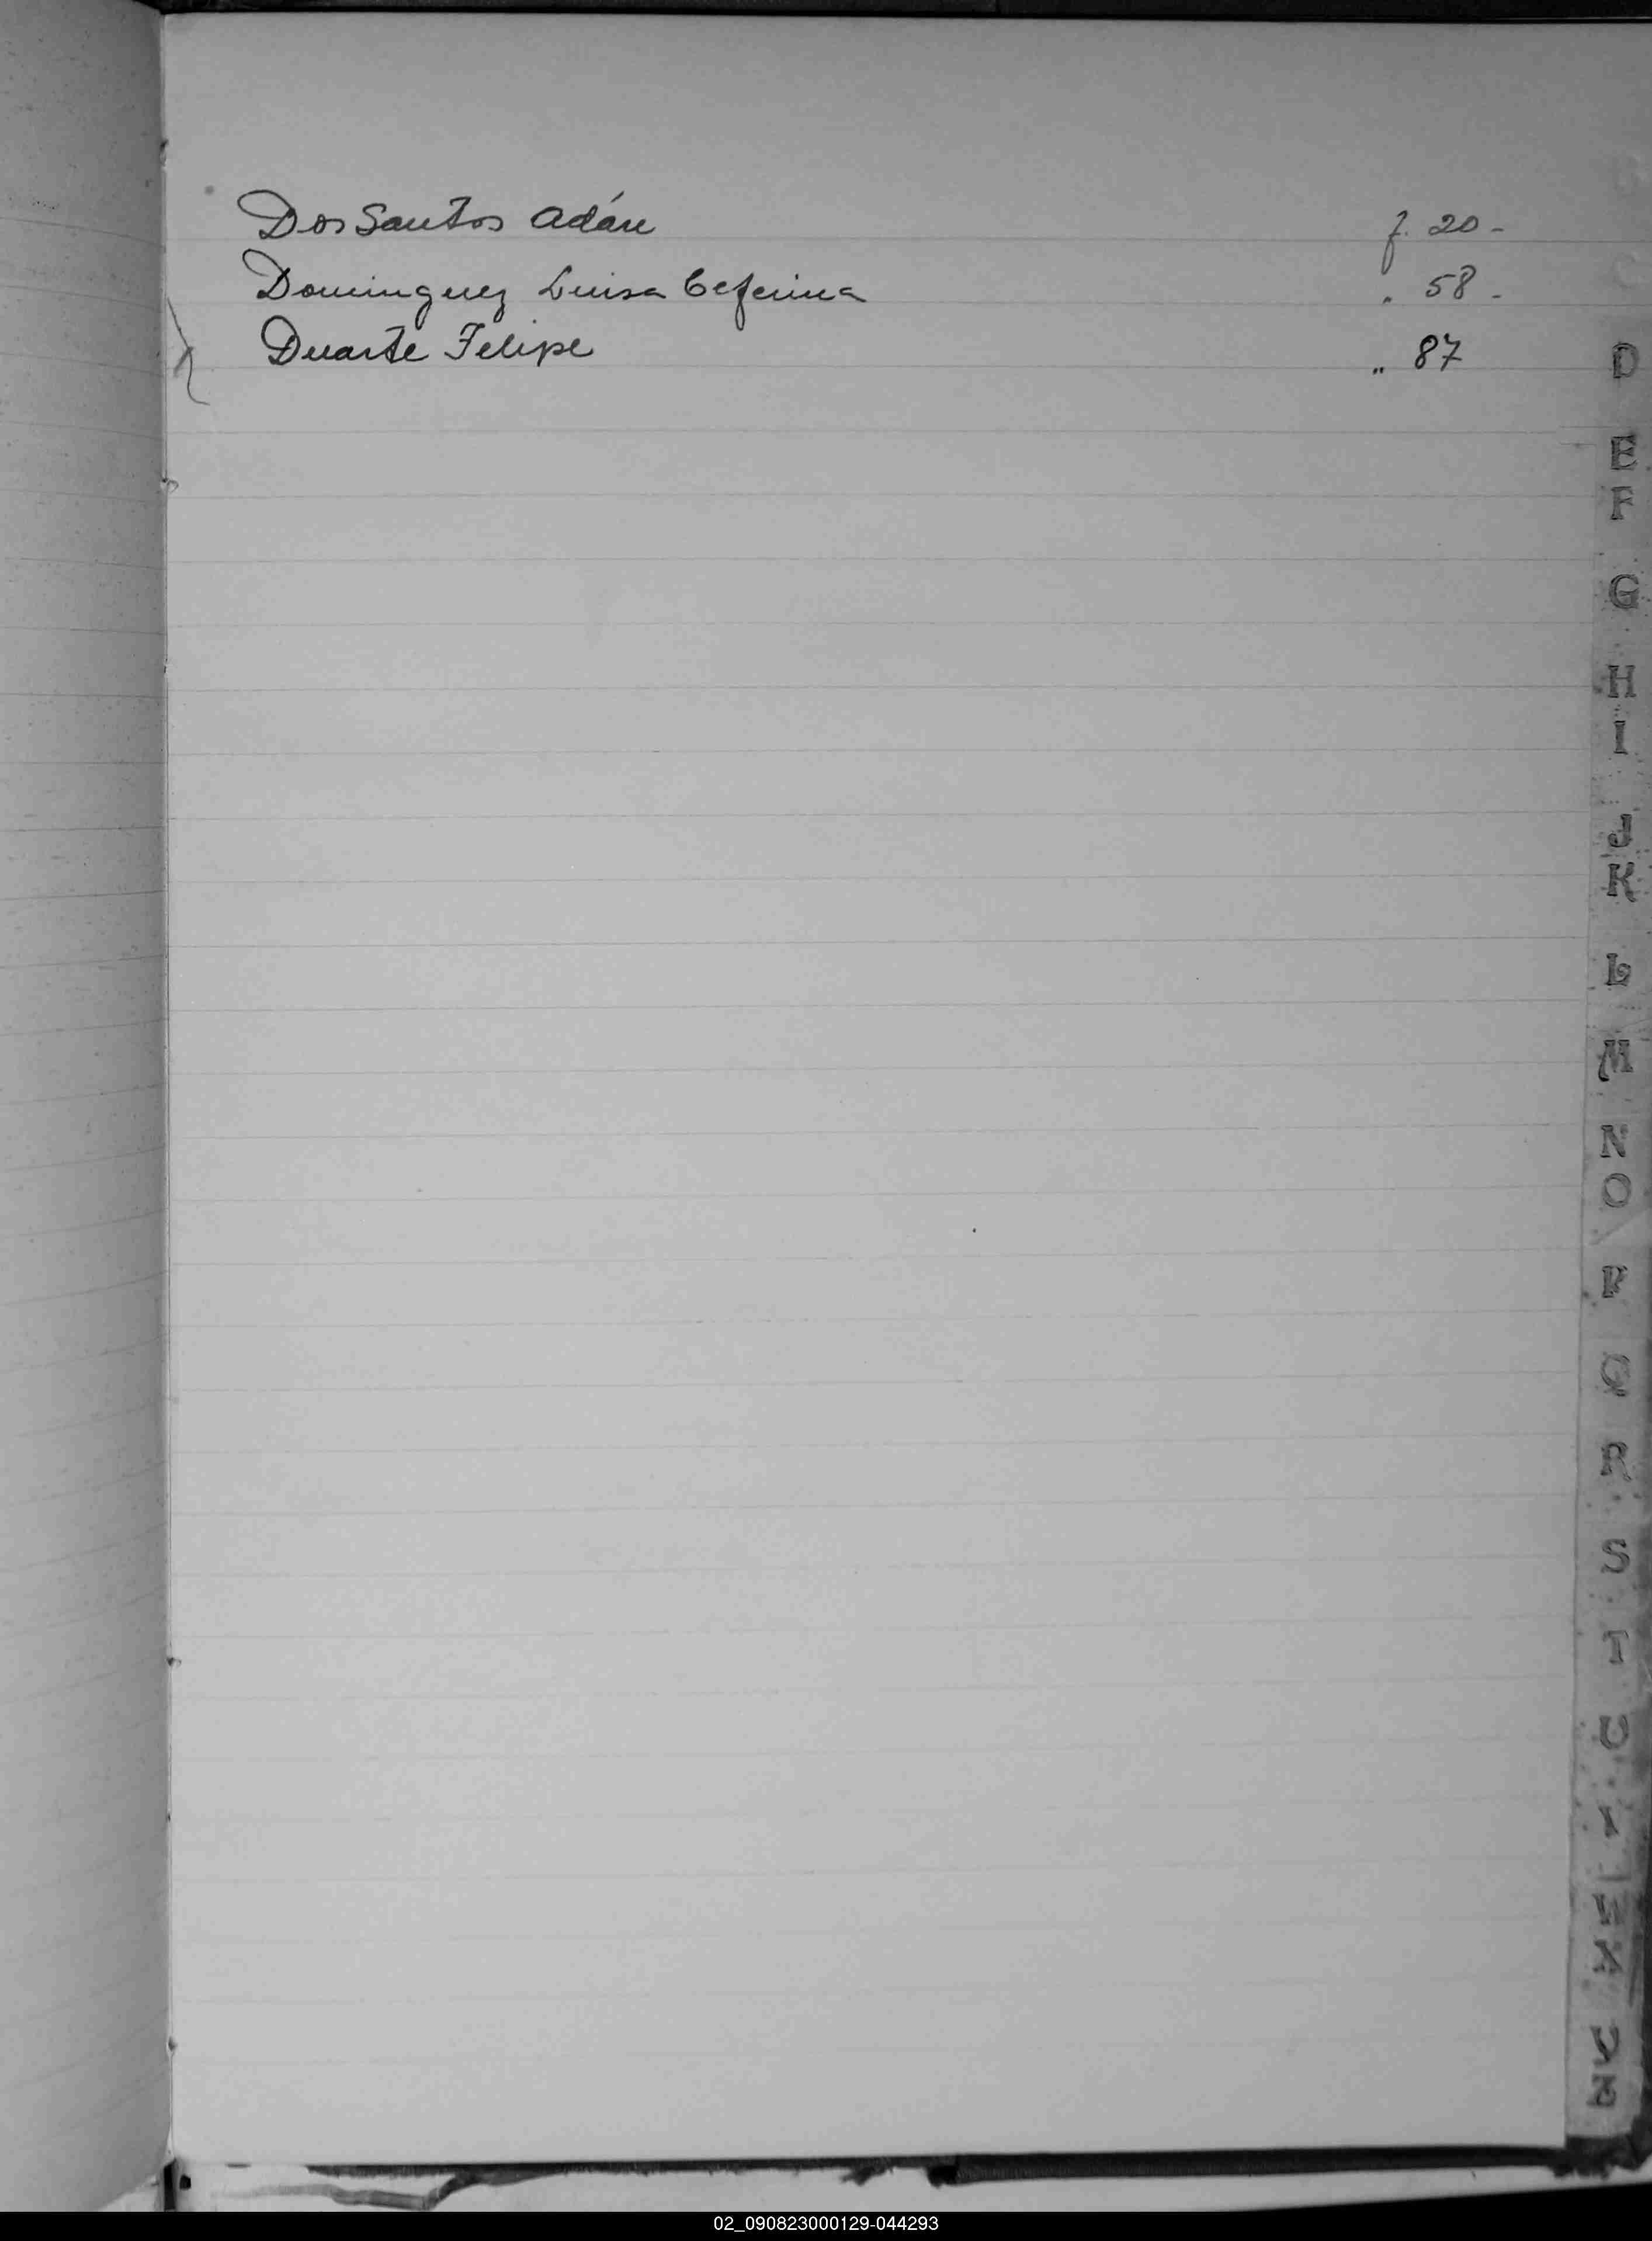 Dos Santos Adán f. 20 -
Dominguez Luisa Ceferina . 58 -
Duarte Felipe „ 87
D
E
F
G
H
I
J
K
L
M
N
O
P
Q
R
S
T
U
02_090823000129-044293